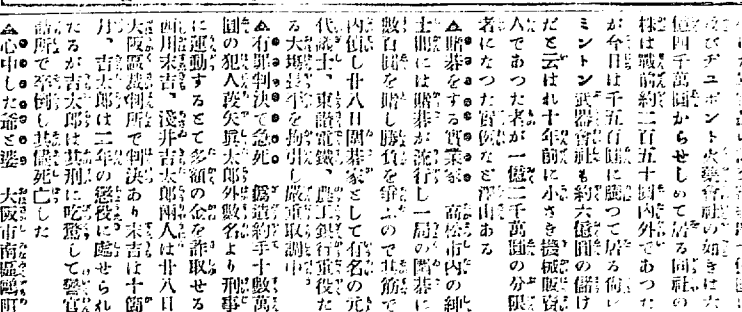 及びヂユポント火藥會社の如きは六
億四千萬圓からせしめて居る同社の
株は戰前約二百五十圓内外であつた
が今日は千五百圓に騰つて居る尚レ
ミントン武器會社も約六億圓の儲け
だと云はれ十年前に小さき機械販賣
人であつた者が一億二千萬圓の分限
者になつた實例など澤山ある
▲賭碁をする實業家 高松市内の紳
士間には賭碁が流行し一局の圍碁に
數百圓を賭し勝負を爭ふので其筋で
内偵し廿八日圍碁家として有名の元
代議士、東讃電鐵、農工銀行重役た
る大塲長平を拘引し嚴重取調中
▲有罪判決で急死 僞造約手十數萬
圓の犯人夜矢眞太郎外數名より刑事
に運動するとて多額の金を詐取せる
西川末吉、淺井吉太郎兩人は廿八日
大阪區裁判所で判決あり末吉は十箇
月、吉太郎は二年の懲役に處せられ
たるが吉太郎は其刑に吃驚して警官
詰所で卒倒し其儘死亡した
▲心中した爺と婆 大阪市南區鶴町